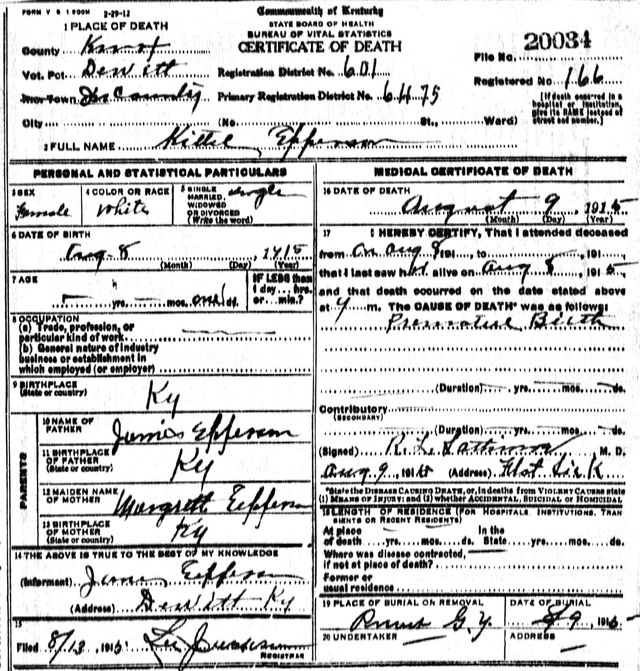 FORM V S 1 2-29-12
Commonwealth of Kentucky
STATE BOARD OF HEALTH
BUREAU OF VITAL STATISTICS
CERTIFICATE OF DEATH
1 PLACE OF DEATH
County Knox
Vot. Pct. Dewitt
Inc. Town
City
Registration District No. 601
Primary Registration District No. 6475
(No. St., Ward)
File No. 20034
Registered No. 166
[If death occurred in a hospital or institution, give its NAME instead of street and number.]
2 FULL NAME Kittie Epperson
PERSONAL AND STATISTICAL PARTICULARS
3 SEX Female
4 COLOR OR RACE White
5 SINGLE, MARRIED, WIDOWED OR DIVORCED (Write the word) single
6 DATE OF BIRTH
Aug 8, 1915
(Month) (Day) (Year)
7 AGE
yrs. mos. one ds.
IF LESS than 1 day... hrs. or... min.?
8 OCCUPATION
(a) Trade, profession, or particular kind of work
(b) General nature of industry business or establishment in which employed (or employer)
9 BIRTHPLACE (State or country) Ky
PARENTS
10 NAME OF FATHER James Epperson
11 BIRTHPLACE OF FATHER (State or country) Ky
12 MAIDEN NAME OF MOTHER Margrett Epperson
13 BIRTHPLACE OF MOTHER (State or country) Ky
14 THE ABOVE IS TRUE TO THE BEST OF MY KNOWLEDGE
(Informant) James Epperson
(Address) Dewitt Ky
15
Filed 8/13, 1915
REGISTRAR
MEDICAL CERTIFICATE OF DEATH
16 DATE OF DEATH
August 9 1915
(Month) (Day) (Year)
17 I HEREBY CERTIFY, That I attended deceased
from on Aug 8 191, to 191
that I last saw h alive on Aug 8, 1915
and that death occurred on the date stated above
at m. The CAUSE OF DEATH* was as follows:
Premature Birth
(Duration) yrs. mos. ds.
Contributory
(SECONDARY)
(Duration) yrs. mos. ds.
(Signed) R. L. M. D.
Aug 9, 1915 (Address) Flat Lick
*State the DISEASE CAUSING DEATH, or, in deaths from VIOLENT CAUSES state (1) MEANS OF INJURY; and (2) whether ACCIDENTAL, SUICIDAL or HOMICIDAL
18 LENGTH OF RESIDENCE (FOR HOSPITALS, INSTITUTIONS, TRANSIENTS OR RECENT RESIDENTS)
At place of death yrs. mos. ds. In the State yrs. mos. ds.
Where was disease contracted, if not at place of death?
Former or usual residence
19 PLACE OF BURIAL OR REMOVAL G.Y.
DATE OF BURIAL 8/9 1915
20 UNDERTAKER
ADDRESS